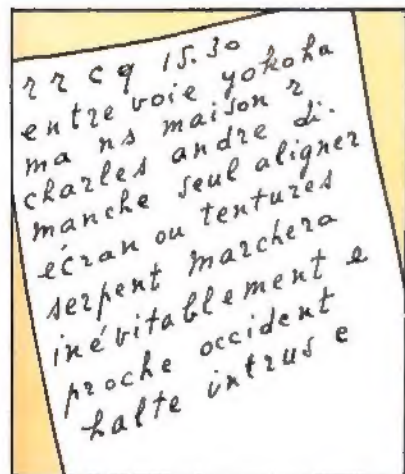 rrcq 15.30
entre voie yokoha
ma ns maison r
charles andre di.
manche seul aligner
écran ou tentures
serpent marchera
inévitablement e
proche occident
halte intrus e